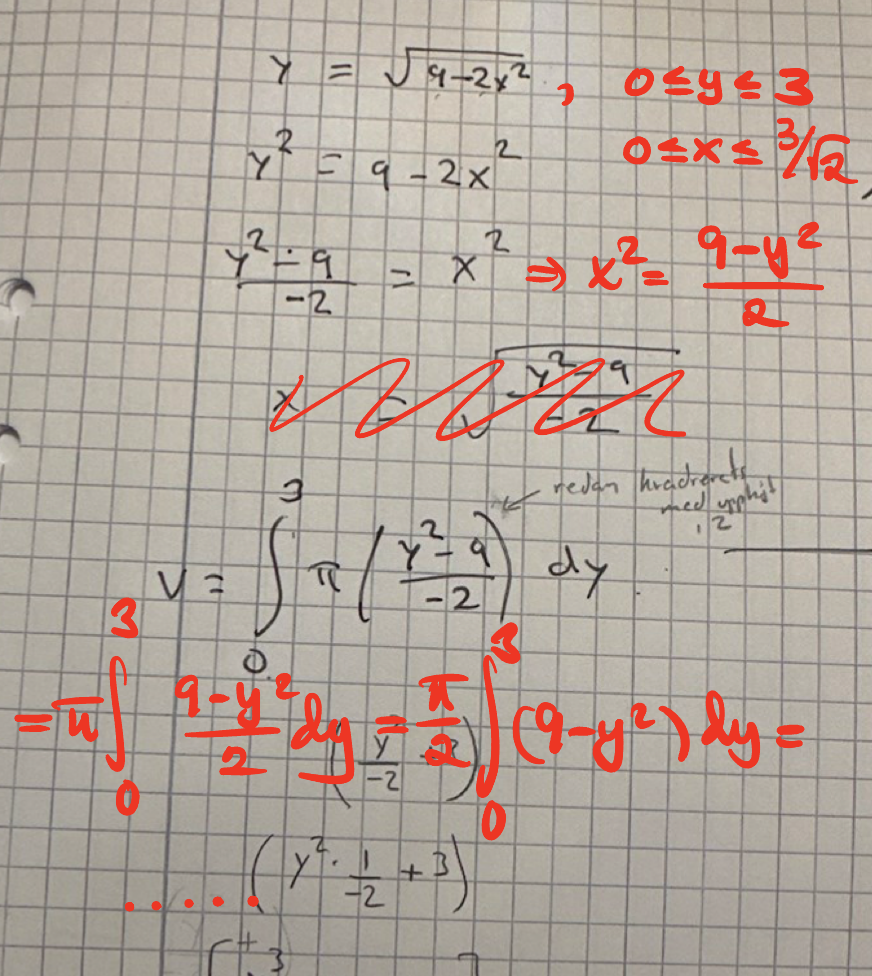 y = √(9-2x²) , 0 ≤ y ≤ 3
y² = 9 - 2x² 0 ≤ x ≤ 3/√2
(y² - 9)/(-2) = x² ⇒ x² = (9-y²)/2
x = √((y² - 9)/(-2))
redan kvadrerats
med upphöjt
2
V = ∫₀³ π ((y² - 9)/(-2)) dy
= π ∫₀³ (9-y²)/2 dy = π/2 ∫₀³ (9-y²) dy =
(y² · 1/(-2) + 3)
.....